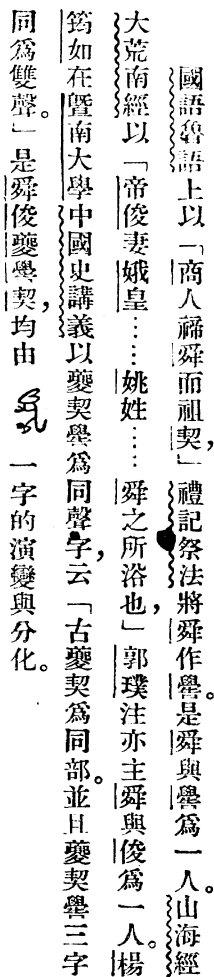 國語魯語上以「商人禘舜而祖契，」禮記祭法將舜作嚳。是舜與嚳爲一人。山海經
大荒南經以「帝俊妻娥皇……姚姓……舜之所浴也，」郭璞注亦主舜與俊爲一人。楊
筠如在曁南大學中國史講義以夔契嚳爲同聲字，云「古夔契爲同部。並且夔契嚳三字
同爲雙聲。」是舜俊夔嚳契，均由一字的演變與分化。